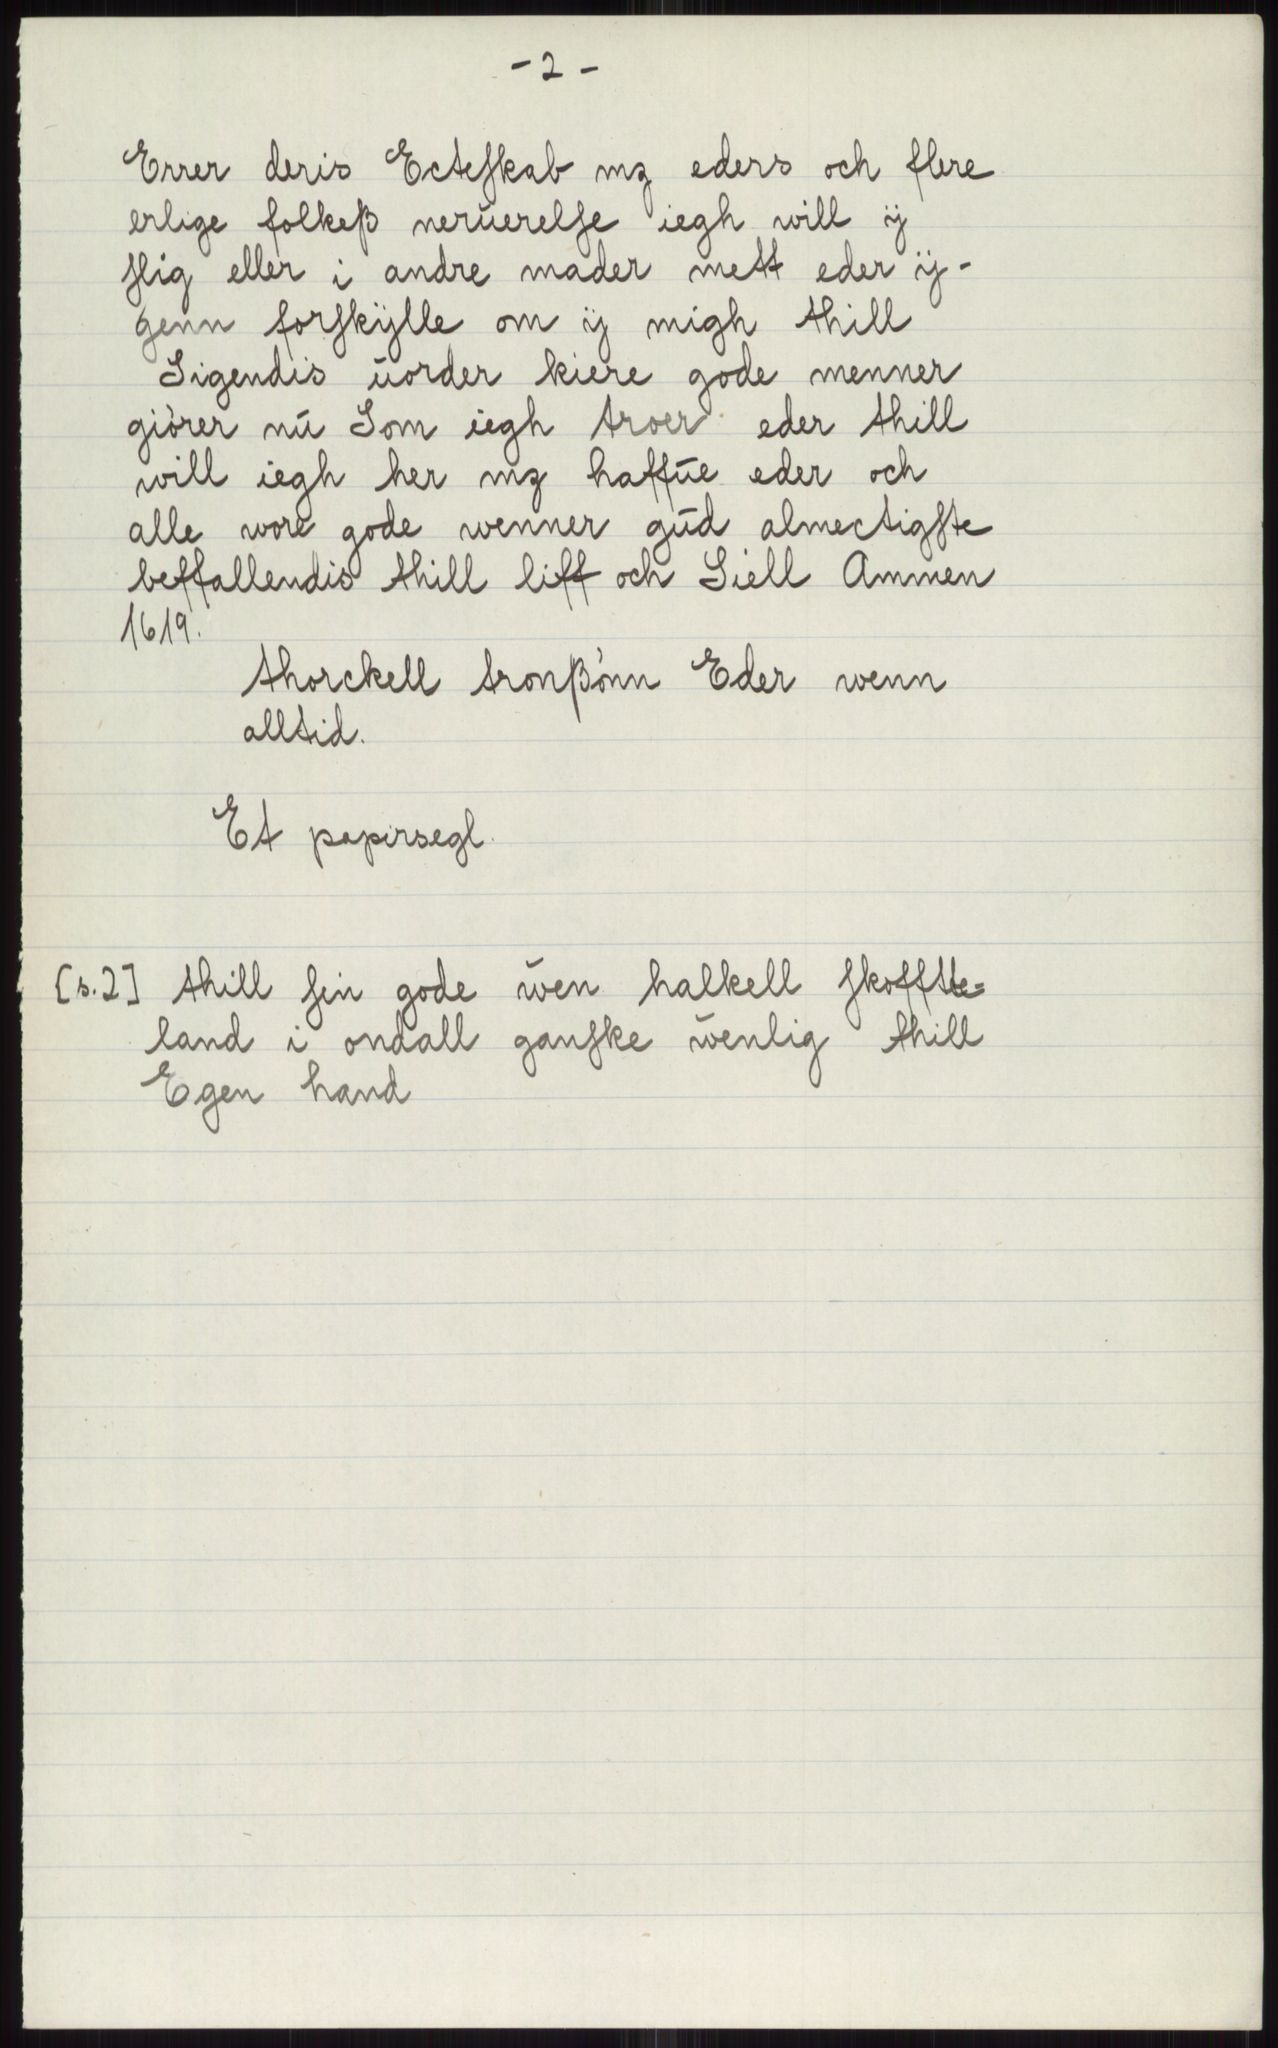 - 2 -
Errer deris Ecteskab mz eders och flere
erlige folkeß nerŭerelse iegh will ÿ
slig eller i andre mader mett eder ÿ-
genn forskÿlle om ÿ migh thill
Sigendis ŭorder kiere gode menner
giörer nŭ Som iegh troer eder thill
will iegh her mz haffŭe eder och
alle wore gode wenner gŭd almectigste
beffallendis thill liff och Siell Ammen
1619.
thorckell tronßönn Eder wenn
alltid.
Et papirsegl.
[s.2] thill sin gode ŭen halkell skoffte=
land i ondall ganske ŭenlig thill
Egen hand